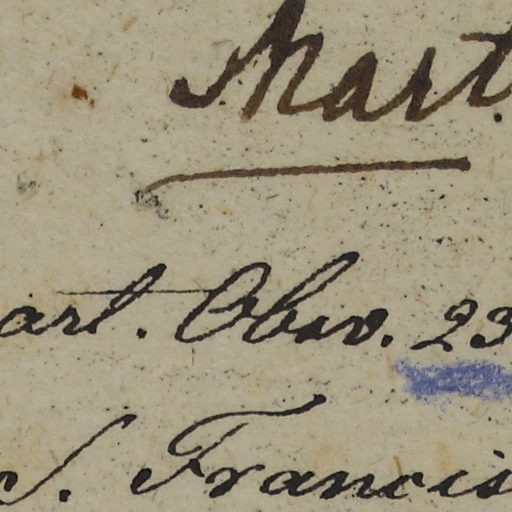 Mart
art. Obsv. 23
S. Francis